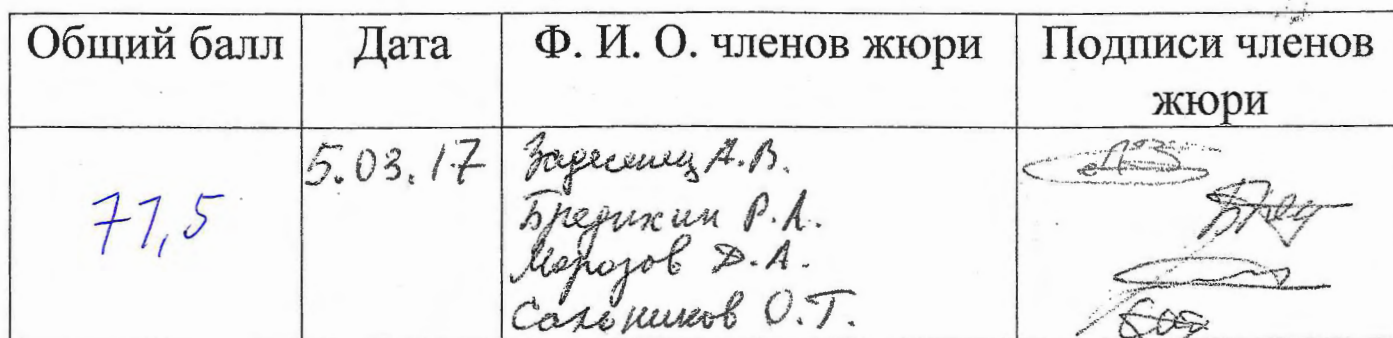 Общий балл Дата Ф. И. О. членов жюри Подписи членов
жюри
71,5 5.03.17 Задесенец А.В.
Бредихин Р.А.
Морозов Д.А.
Сальников О.Г.